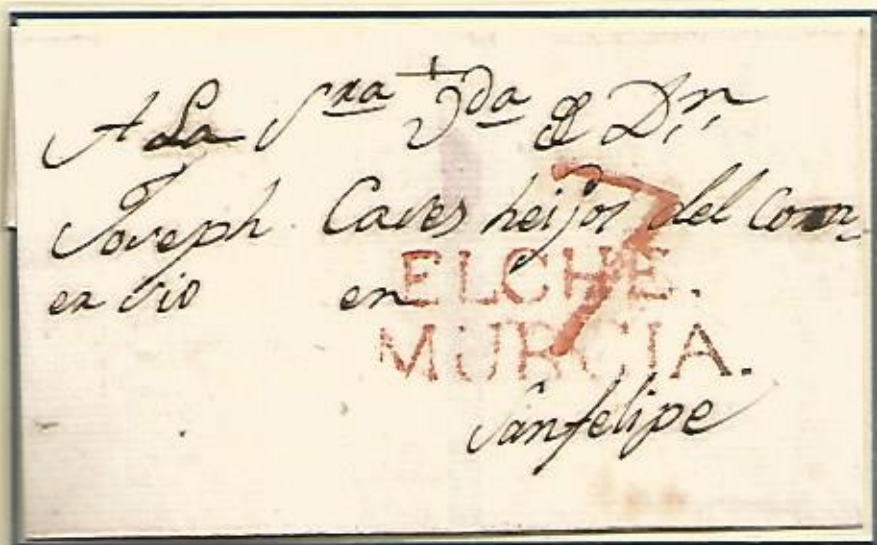 A La Sra Vda de Dn
Joseph Caves heijos del Com
ercio en
ELCHE.
MURCIA.
7
Sanfelipe